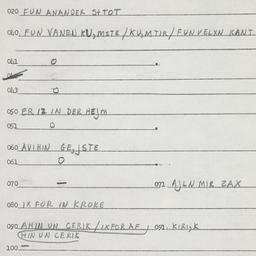 020 FUN ANANDER S+TOT
040 FUN VANEN KU,MSTR/KU,MTIR/FUN VELXN KANT
041 0
043 0
050 ER IZ IN DER HEJM
051 0
060 AVIHIN GE,JSTE
061 0
070 — 071 AJLN MIR ZAX
080 IX FUR IN KROKE
090 AHIN UN CERIK/IXFOR AF, 091. KIRIJK
HIN UN CERIK
100 —